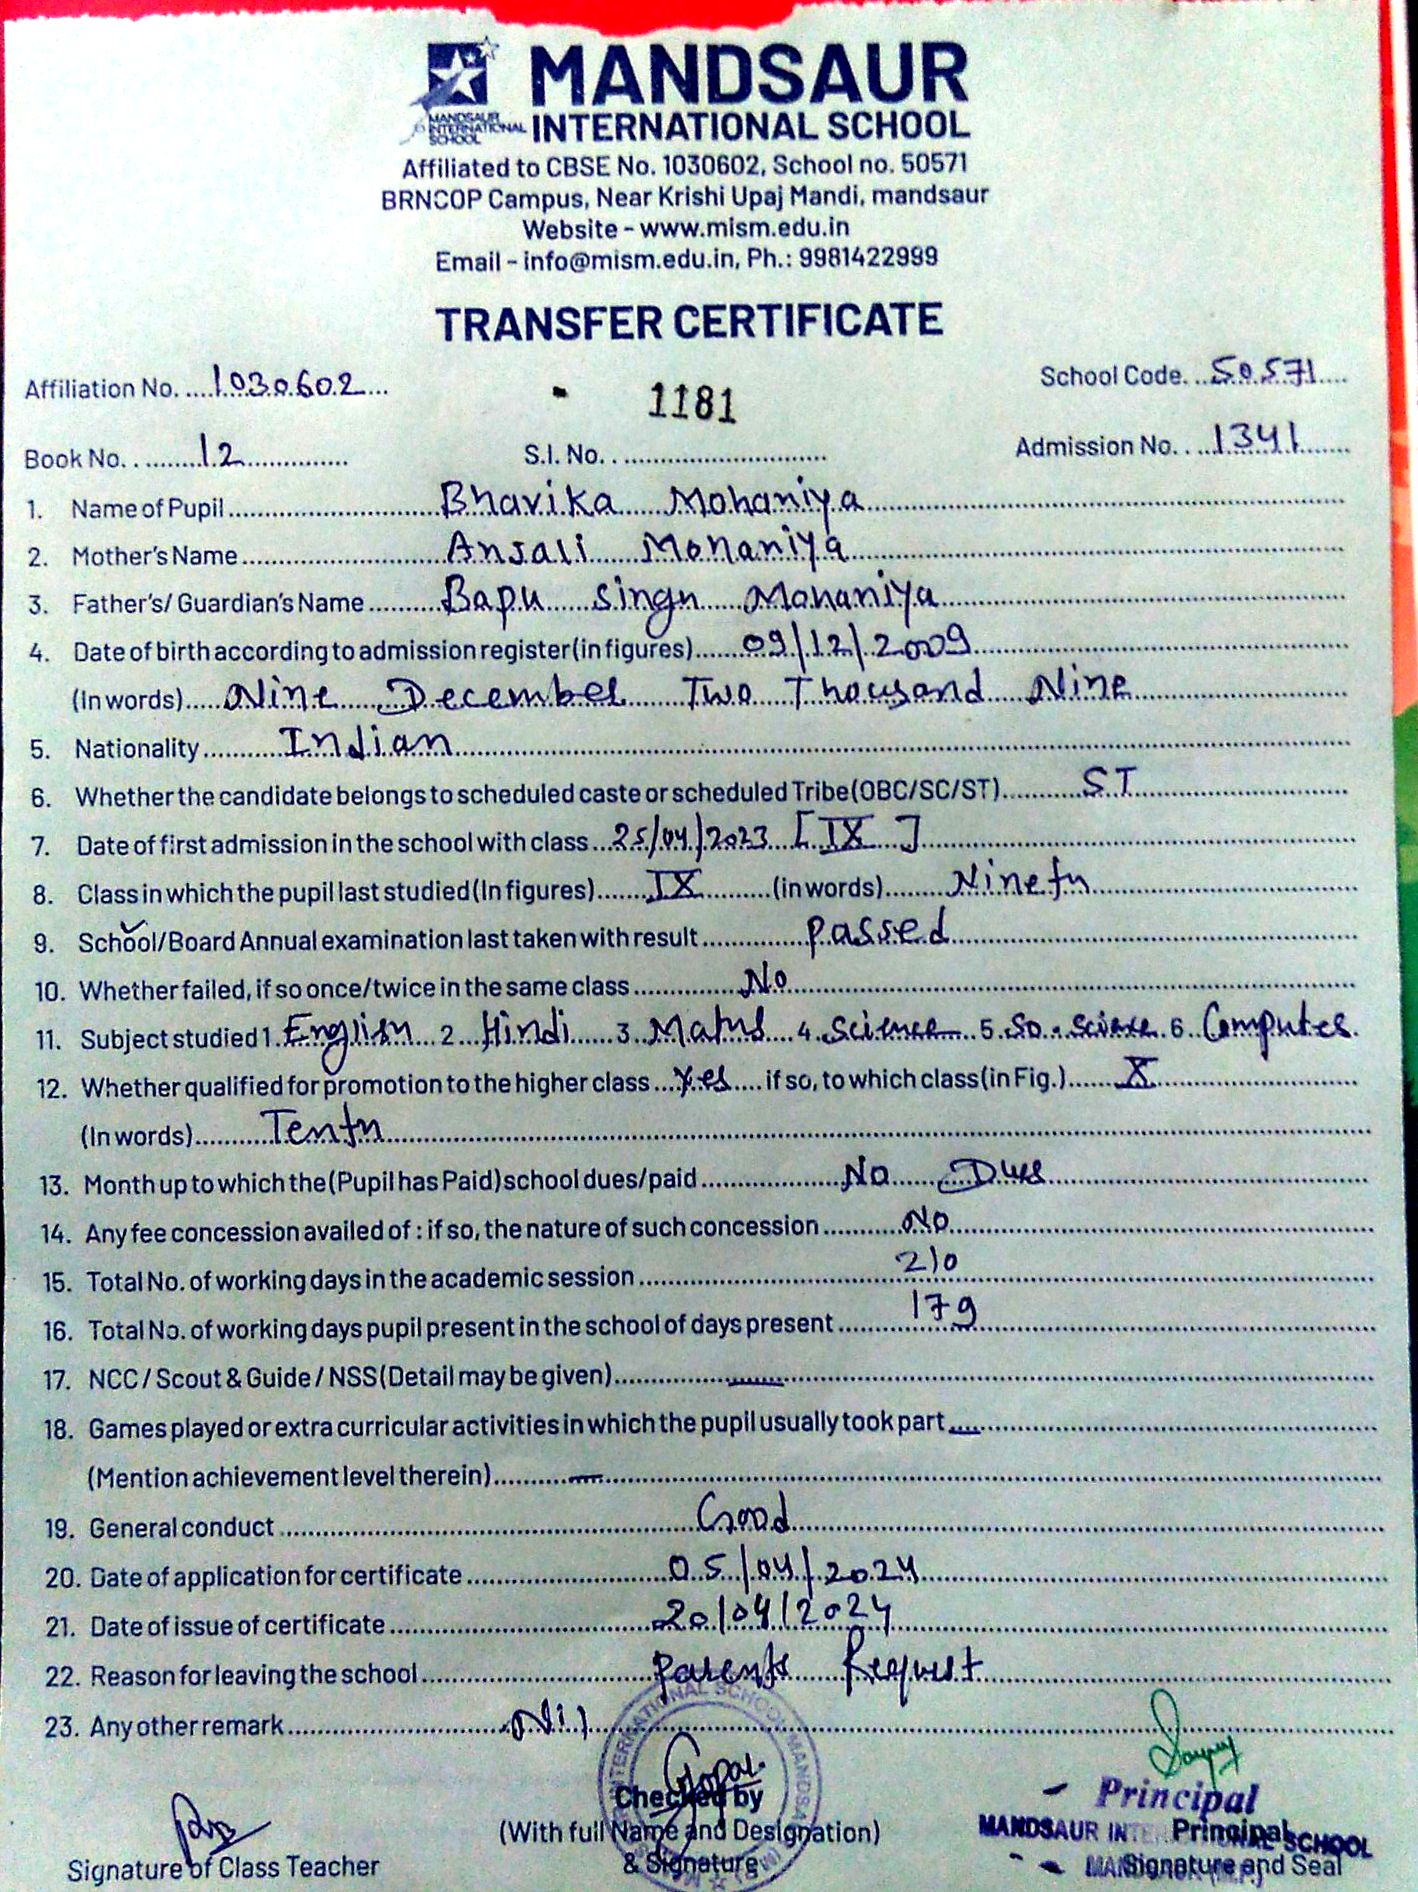 MANDSAUR
INTERNATIONAL SCHOOL
MANDSAUR
INTERNATIONAL
SCHOOL
Affiliated to CBSE No. 1030602, School no. 50571
BRNCOP Campus, Near Krishi Upaj Mandi, mandsaur
Website - www.mism.edu.in
Email - info@mism.edu.in, Ph.: 9981422999
TRANSFER CERTIFICATE
Affiliation No. ....1030602... 1181 School Code. ..50571....
Book No. . ........12.............. S.I. No. . ............................ Admission No. . ..1341.......
1. Name of Pupil ........ Bhavika Mohaniya ........
2. Mother's Name ........ Anjali Mohaniya ........
3. Father's/ Guardian's Name ........ Bapu Singh Mohaniya ........
4. Date of birth according to admission register (in figures) ...... 09/12/2009 ........
(In words) ..... Nine December Two Thousand Nine ........
5. Nationality ........ Indian ........
6. Whether the candidate belongs to scheduled caste or scheduled Tribe (OBC/SC/ST) ........ ST ........
7. Date of first admission in the school with class ... 25/04/2023 [IX] ........
8. Class in which the pupil last studied (In figures) ...... IX ........ (in words) ........ Nineth ........
9. School/Board Annual examination last taken with result ........ passed ........
10. Whether failed, if so once/twice in the same class ........ No ........
11. Subject studied 1. English 2. Hindi 3. Maths 4. Science 5. So. Science 6. Computer
12. Whether qualified for promotion to the higher class ... yes .... if so, to which class (in Fig.) ...... X ........
(In words) ........ Tenth ........
13. Month up to which the (Pupil has Paid) school dues/paid ........ No Dues ........
14. Any fee concession availed of : if so, the nature of such concession ........ No ........
15. Total No. of working days in the academic session ........ 210 ........
16. Total No. of working days pupil present in the school of days present ........ 179 ........
17. NCC / Scout & Guide / NSS (Detail may be given) ........ — ........
18. Games played or extra curricular activities in which the pupil usually took part .... — ........
(Mention achievement level therein) ........ — ........
19. General conduct ........ Good ........
20. Date of application for certificate ........ 05/04/2024 ........
21. Date of issue of certificate ........ 20/04/2024 ........
22. Reason for leaving the school ........ Parents Request ........
23. Any other remark ........ Nil ........
Gopal
Checked by
(With full Name and Designation)
& Signature
Signature of Class Teacher
Principal
MANDSAUR INTERNATIONAL SCHOOL
Principal
Signature and Seal
INTERNATIONAL SCHOOL MANDSAUR